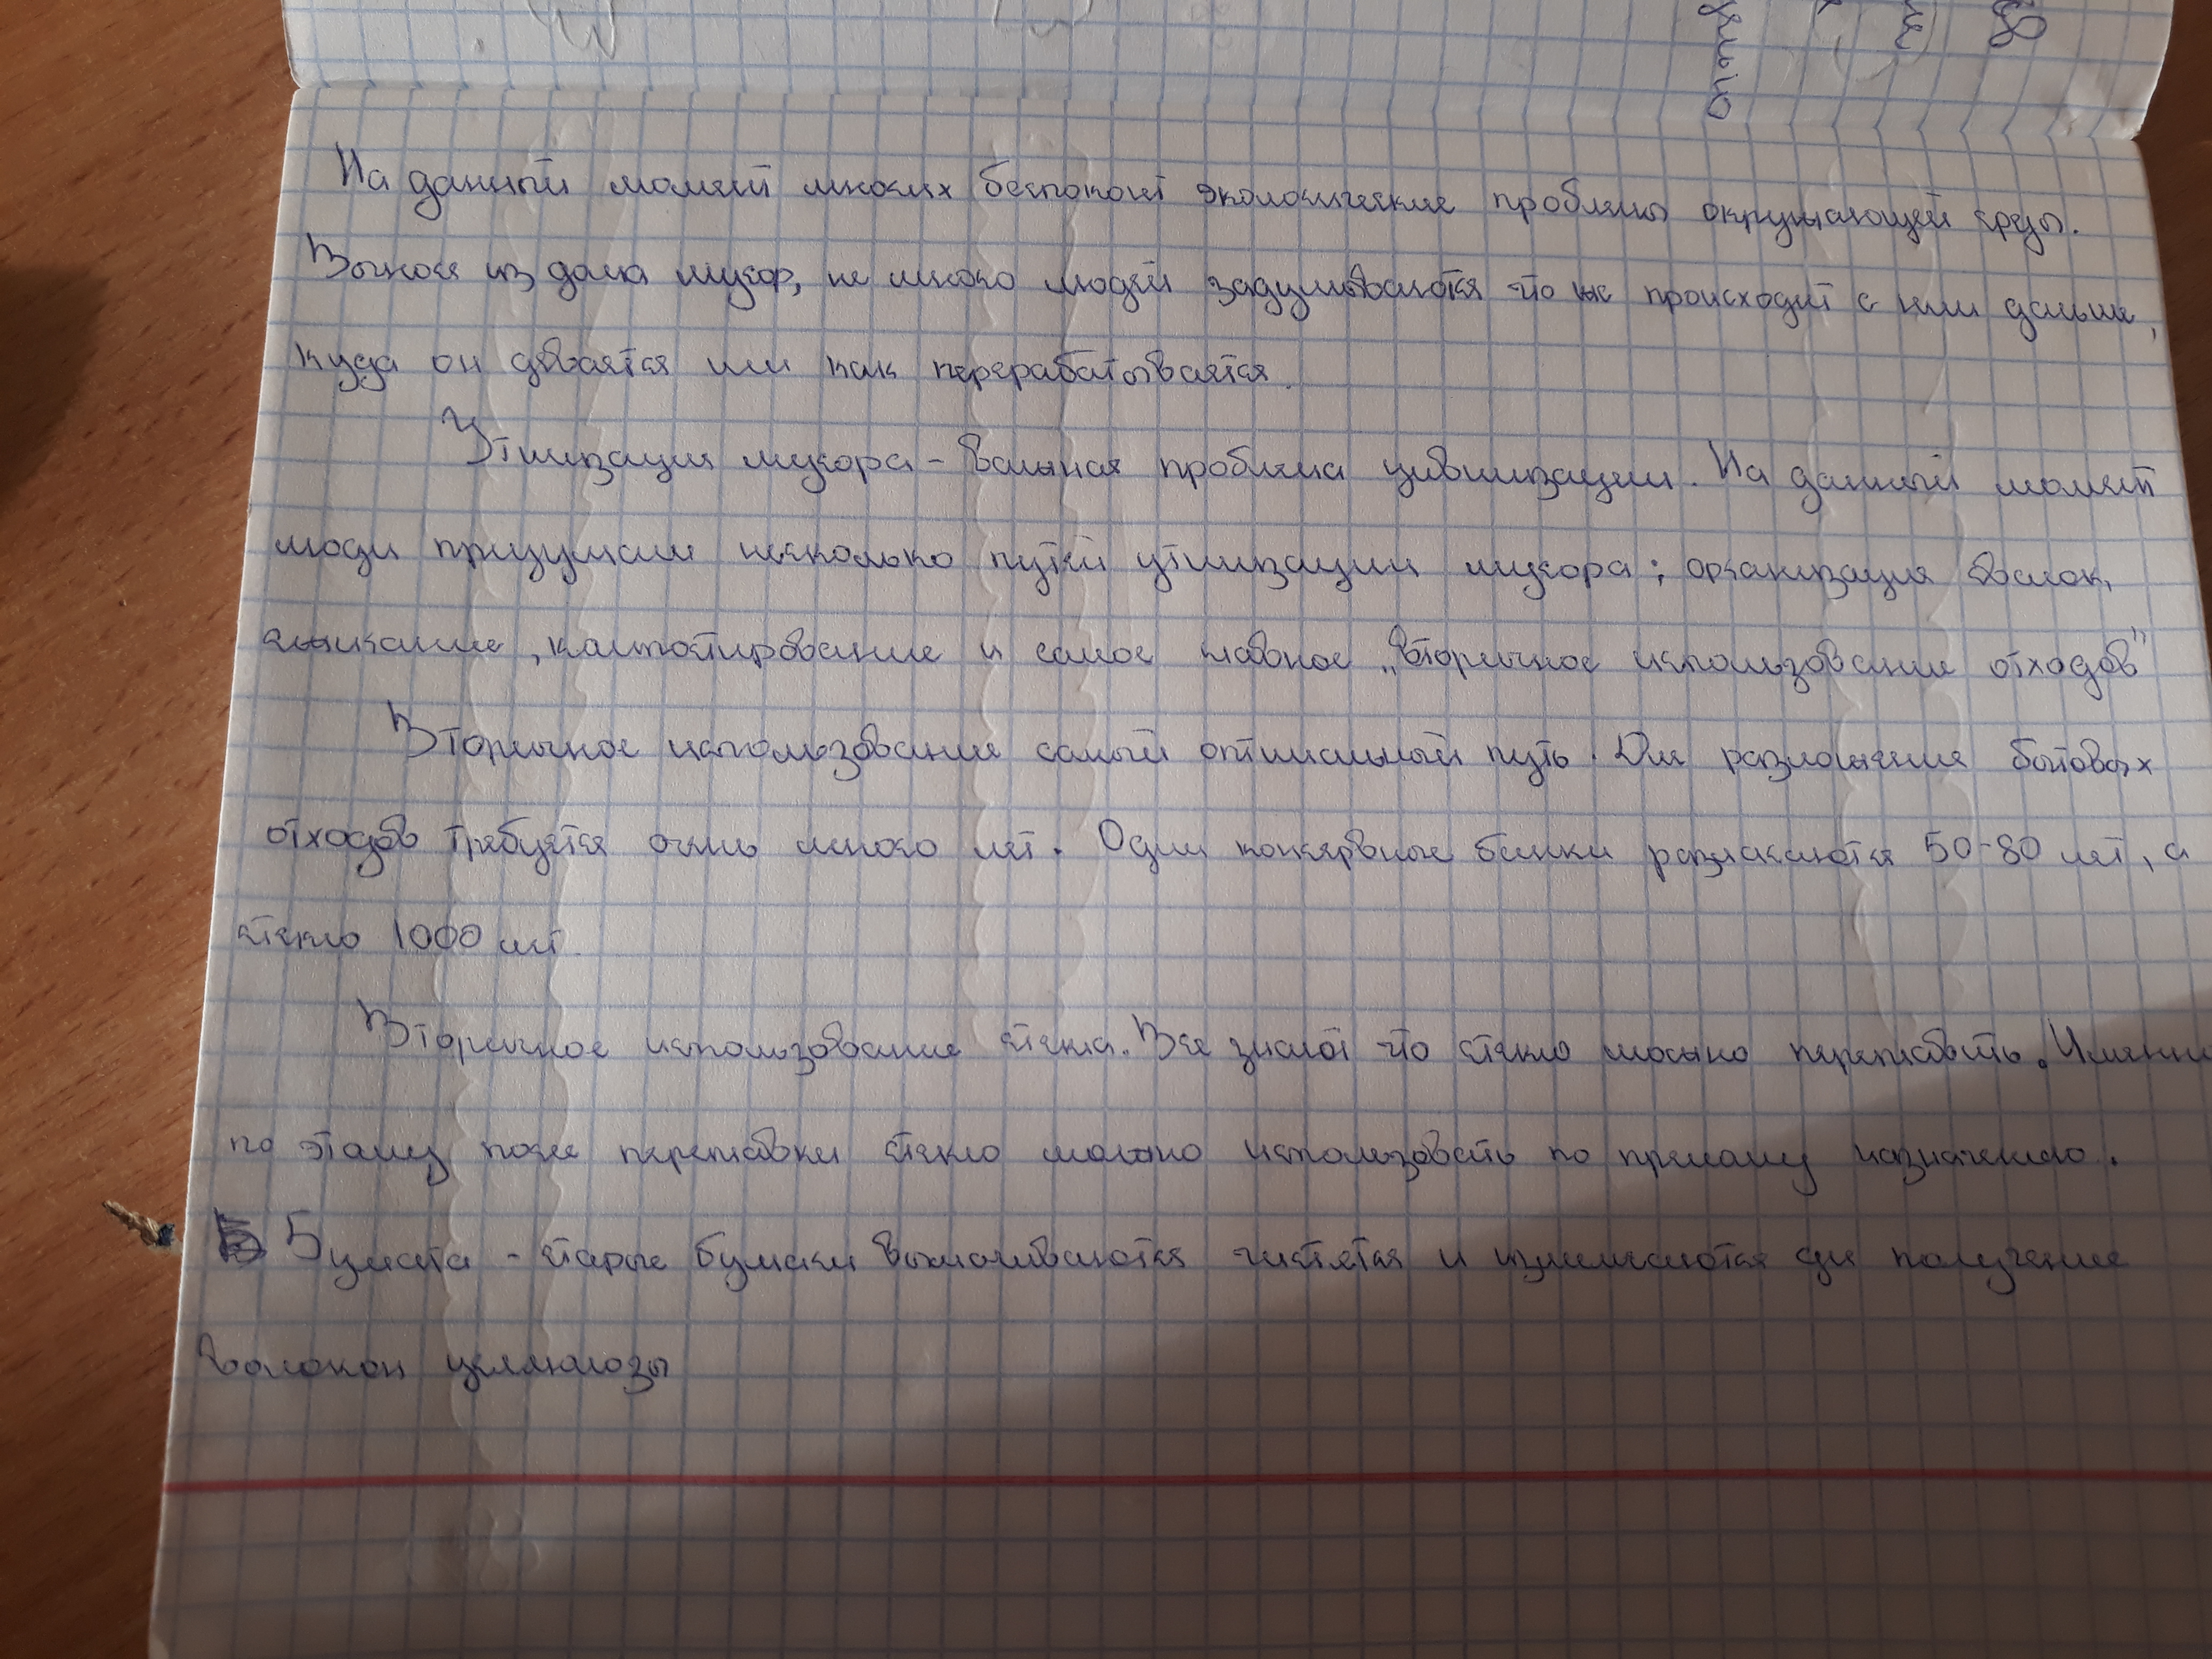 На данный момент многих беспокоит экологические проблемы окружающей среды.
Вынося из дома мусор, не много людей задумываются что же происходит с ним дальше,
куда он девается или как перерабатывается.
Утилизация мусора - важная проблема цивилизации. На данный момент
люди придумали несколько путей утилизации мусора; организация свалок,
сжигание, компостирование и самое главное „вторичное использование отходов"
Вторичное использование самый оптимальный путь. Для разложения бытовых
отходов требуется очень много лет. Одни консервные банки разлагаются 50-80 лет, а
стекло 1000 лет.
Вторичное использование стекла. Все знают что стекло можно переплавить. Именно
по этому после переплавки стекло можно использовать по прямому назначению.
Бумага - старые бумаги вымачиваются чистятся и измельчаются для получение
волокон целлюлозы